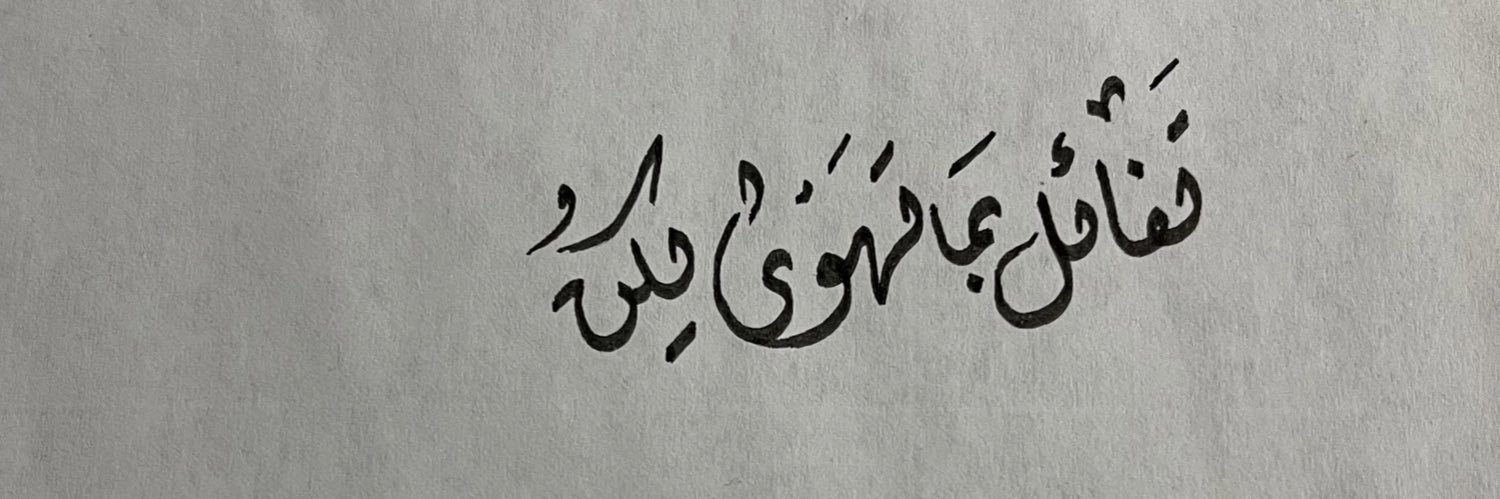 تَفَائْل بِمَا تَهْوَىٰ يَكُنْ